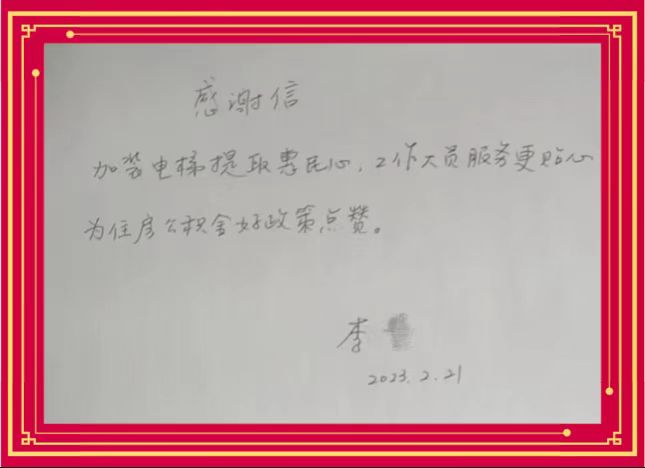 感谢信
加装电梯提取惠民心,工作人员服务更贴心
为住房公积金好政策点赞。
李
2023.2.21